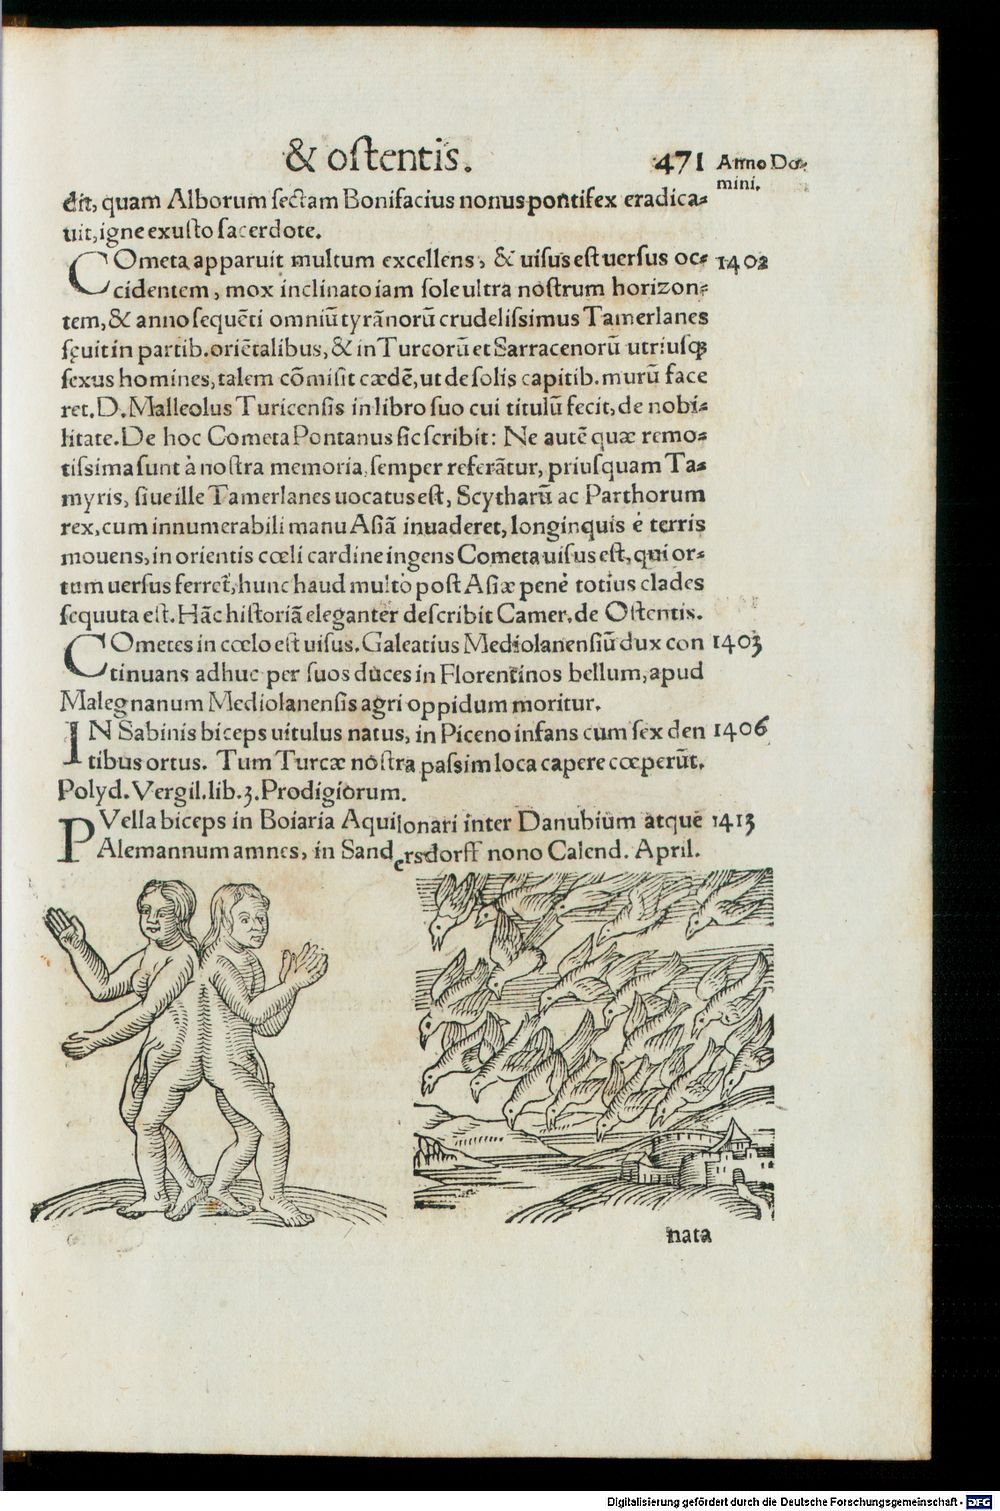 & oſtentis. 471 Anno Do-
mini.
dit, quam Alborum ſectam Bonifacius nonus pontifex eradica-
uit, igne exuſto ſacerdote.
COmeta apparuit multum excellens, & uiſus eſt uerſus oc- 1402
cidentem, mox inclinato iam ſole ultra noſtrum horizon-
tem, & anno ſequẽti omniũ tyrãnorũ crudeliſsimus Tamerlanes
ſęuit in partib. oriẽtalibus, & in Turcorũ et Sarracenorũ utriuſq;
ſexus homines, talem cõmiſit cædẽ, ut de ſolis capitib. murũ face
ret. D. Malleolus Turicenſis in libro ſuo cui titulũ fecit, de nobi-
litate. De hoc Cometa Pontanus ſic ſcribit: Ne autẽ quæ remo-
tiſsima ſunt à noſtra memoria, ſemper referãtur, priuſquam Ta-
myris, ſiue ille Tamerlanes uocatus eſt, Scytharũ ac Parthorum
rex, cum innumerabili manu Aſiã inuaderet, longinquis è terris
mouens, in orientis cœli cardine ingens Cometa uiſus eſt, qui or-
tum uerſus ferret̃, hunc haud multò poſt Aſiæ penè totius clades
ſequuta eſt. Hãc hiſtoriã eleganter deſcribit Camer. de Oſtentis.
COmetes in cœlo eſt uiſus. Galeatius Mediolanenſiũ dux con 1403
tinuans adhuc per ſuos duces in Florentinos bellum, apud
Malegnanum Mediolanenſis agri oppidum moritur.
IN Sabinis biceps uitulus natus, in Piceno infans cum ſex den 1406
tibus ortus. Tum Turcæ noſtra paſsim loca capere cœperũt.
Polyd. Vergil. lib. 3. Prodigiorum.
PVella biceps in Boiaria Aquilonari inter Danubium atque 1413
Alemannum amnes, in Sandersdorff nono Calend. April.
nata
Digitalisierung gefördert durch die Deutsche Forschungsgemeinschaft - DFG